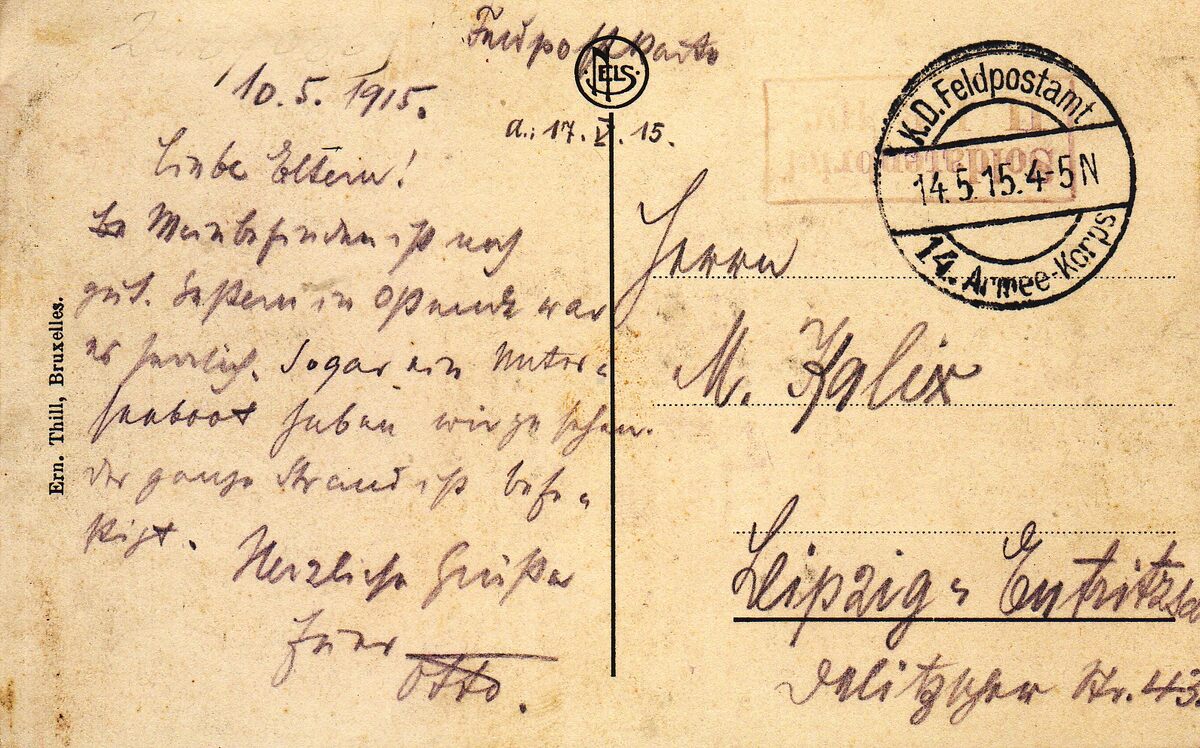 Feldpostkarte
NELS
10.5.1915.
a.: 17.V.15.
Liebe Eltern!
Mein befinden ist noch
gut. Gestern in Ostende war
es herrlich. Sogar ein Unter-
seeboot haben wir gesehen.
Der ganze Strand ist befe-
stigt.
Herzliche Grüße
Euer
Otto.
Ern. Thill, Bruxelles.
K.D. Feldpostamt
14.5.15.4-5N
14. Armee-Korps
Herrn
M. Kalix
Leipzig-Eutritzsch
Delitzscher Str. 43.